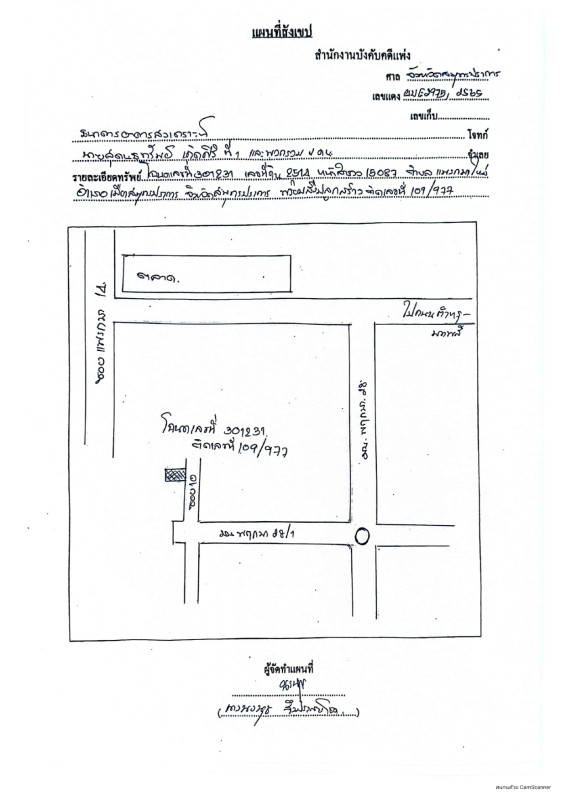 แผนที่สังเขป
สำนักงานบังคับคดีแพ่ง
ศาล จังหวัดสมุทรปราการ
เลขแดง
เลขเก็บ
ธนาคารอาคารสงเคราะห์ โจทก์
ที่ 1 และพวกรวม คน จำเลย
รายละเอียดทรัพย์ โฉนดเลขที่ 301231 เลขที่ดิน 2514 หน้าสำรวจ 15087 ตำบล แพรกษาใหม่
อำเภอเมืองสมุทรปราการ จังหวัดสมุทรปราการ พร้อมสิ่งปลูกสร้าง ติดเลขที่ 109/977
ตลาด.
ซอย แพรกษา 14.
ไปถนนตำหรุ-
โฉนดเลขที่ 301231
ติดเลขที่ 109/977
ซอย 10
ถน. พฤกษา 28.
ถน. พฤกษา 28/1
ผู้จัดทำแผนที่
สแกนด้วย CamScanner